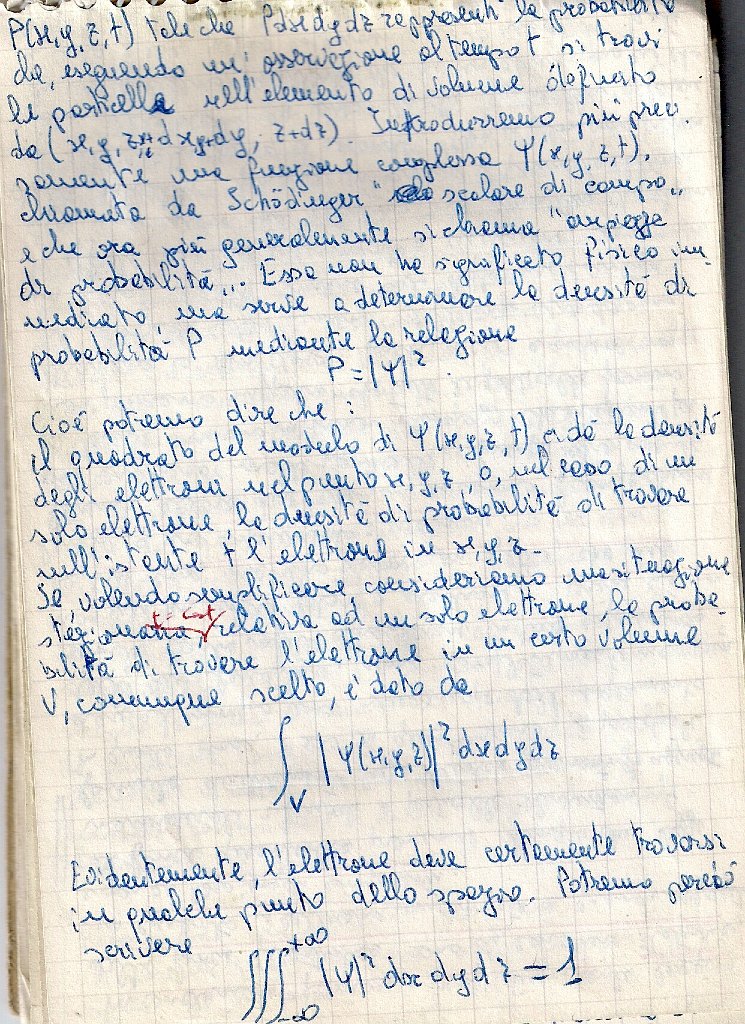 P(x,y,z,t) tale che Pdxdydz rappresenti la probabilità
che, eseguendo un'osservazione al tempo t si trovi
la particella nell'elemento di volume
da (x, y, z, x+dx, y+dy, z+dz). Introdurremo più prec.
samente una funzione complessa Ψ(x,y,z,t),
chiamata da Schödinger "scalare di campo",
e che ora più generalmente si chiama "ampiezza
di probabilità". Essa non ha significato fisico im-
mediato, ma serve a determinare la densità di
probabilità P mediante la relazione
P=|Ψ|².
Cioé potremo dire che :
il quadrato del modulo di Ψ(x,y,z,t) ci dà la densità
degli elettroni nel punto x,y,z, o, nel caso di un
solo elettrone, la densità di probabilità di trovare
nell'istante t l'elettrone in x,y,z.
Se, volendo semplificare, consideriamo una situazione
stazionaria, relativa ad un solo elettrone, la proba-
bilità di trovare l'elettrone in un certo volume
V, comunque scelto, é dato da
∫_V |Ψ(x,y,z)|² dxdydz
Evidentemente, l'elettrone deve certamente trovarsi
in qualche punto dello spazio. Potremo perciò
scrivere
∫∫∫_-∞^+∞ |Ψ|² dx dy dz = 1